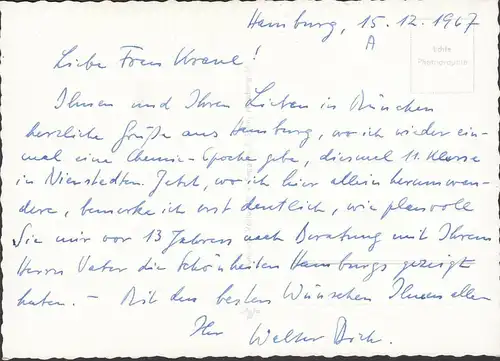 Hamburg, 15.12.1967
A
Echte
Photographie
Liebe Frau Kraul!
Ihnen und Ihren Lieben in München
herzliche Grüße aus Hamburg, wo ich wieder ein-
mal eine Chemie-Epoche gebe, diesmal 11. Klasse
in Nienstedten. Jetzt, wo ich hier allein herumwan-
dere, bemerke ich erst deutlich, wie planvoll
Sie mir vor 13 Jahren nach Beratung mit Ihrem
Herrn Vater die Schönheiten Hamburgs gezeigt
haben. – Mit den besten Wünschen Ihnen allen
Ihr Walter